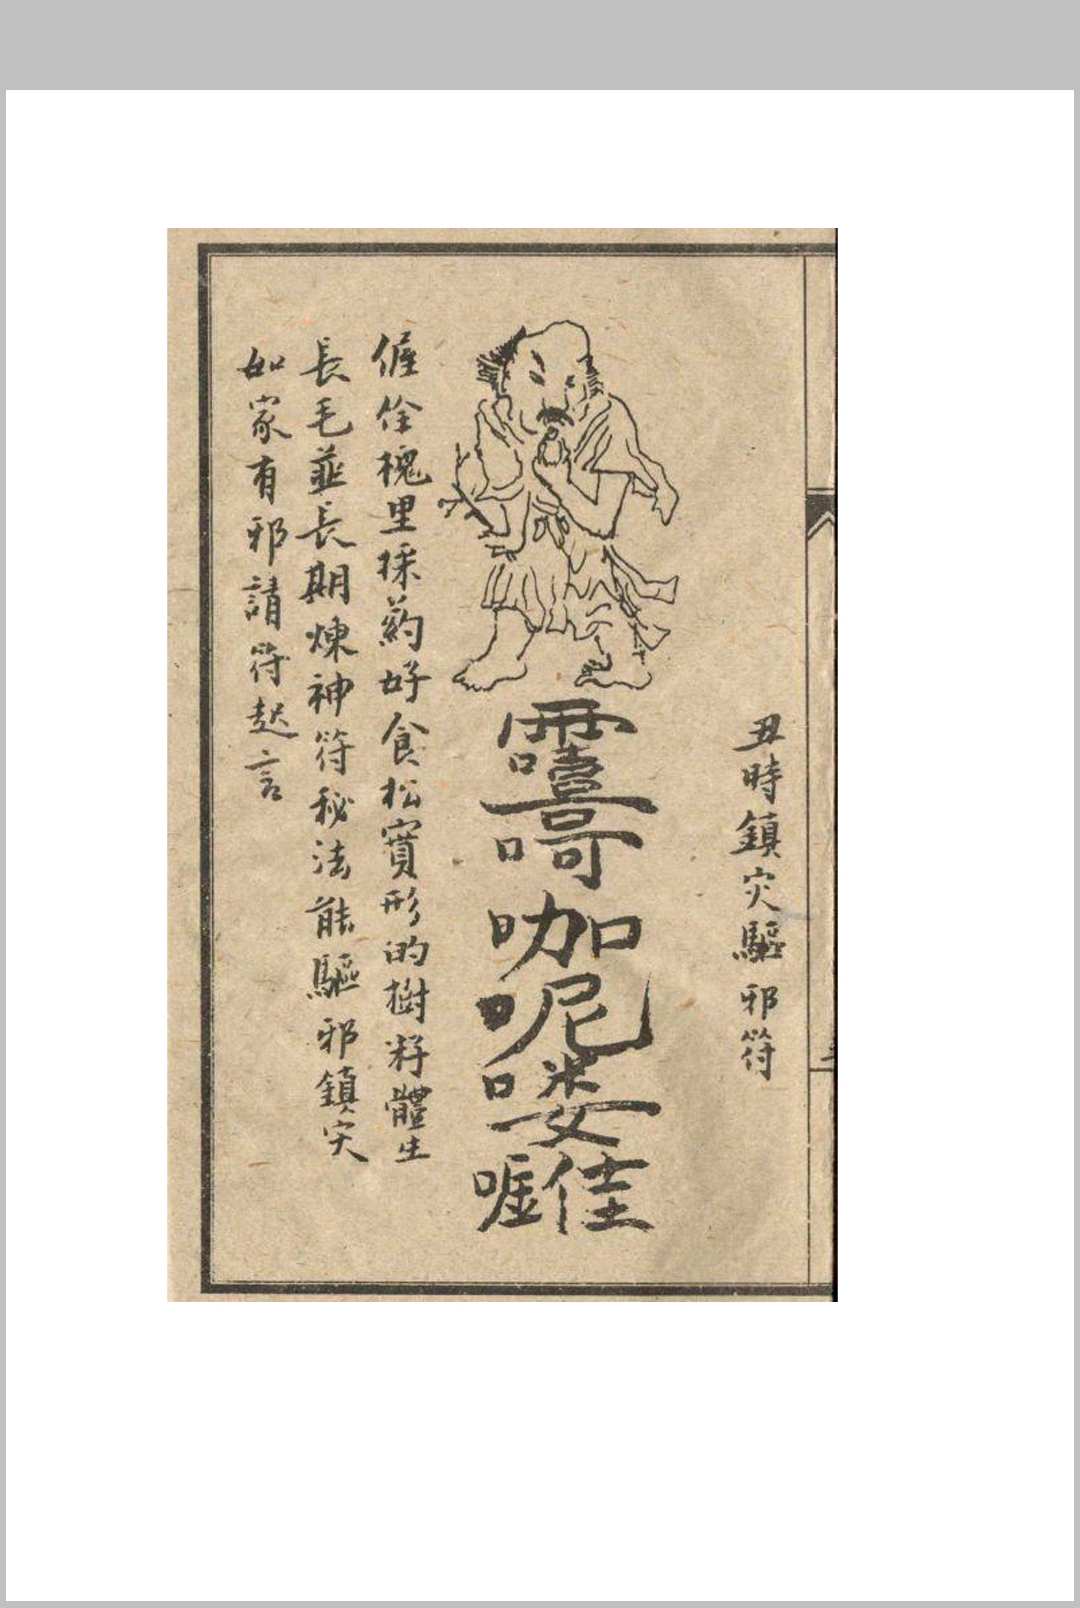 丑時鎮灾驅邪符
咖呢喽
偓佺槐里採药好食松實形的樹籽體生
長毛並長期煉神符秘法能驅邪鎮灾
如家有邪請符起言